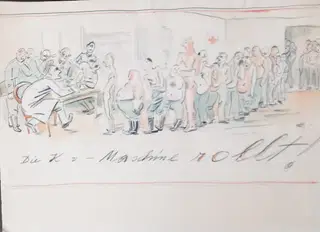 Die K z - Maschine rollt!